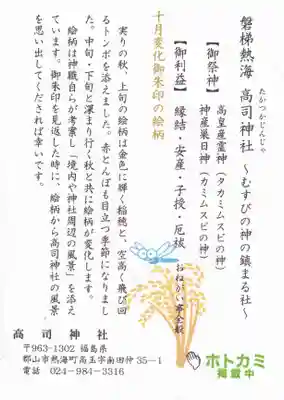 たかつかさじんじゃ
磐梯熱海 高司神社 ～むすびの神の鎮まる社～
【御祭神】 高皇産霊神(タカミムスビの神)
神産巣日神(カミムスビの神)
【御利益】 縁結・安産・子授・厄祓
十月変化御朱印の絵柄
実りの秋、上旬の絵柄は金色に輝く稲穂と、空高く飛び回
るトンボを添えました。赤とんぼも目立つ季節になりまし
た。中旬・下旬と深まり行く秋と共に絵柄が変化します。
絵柄は神職自らが考案し「境内や神社周辺の風景」を添え
ています。御朱印を見返した時に、絵柄から高司神社の風景
を思い出してくだされば幸いです。
ホトカミ
掲載中
高司神社
〒963-1302 福島県
郡山市熱海町高玉字南田仲35−1
電話 024-984-3316